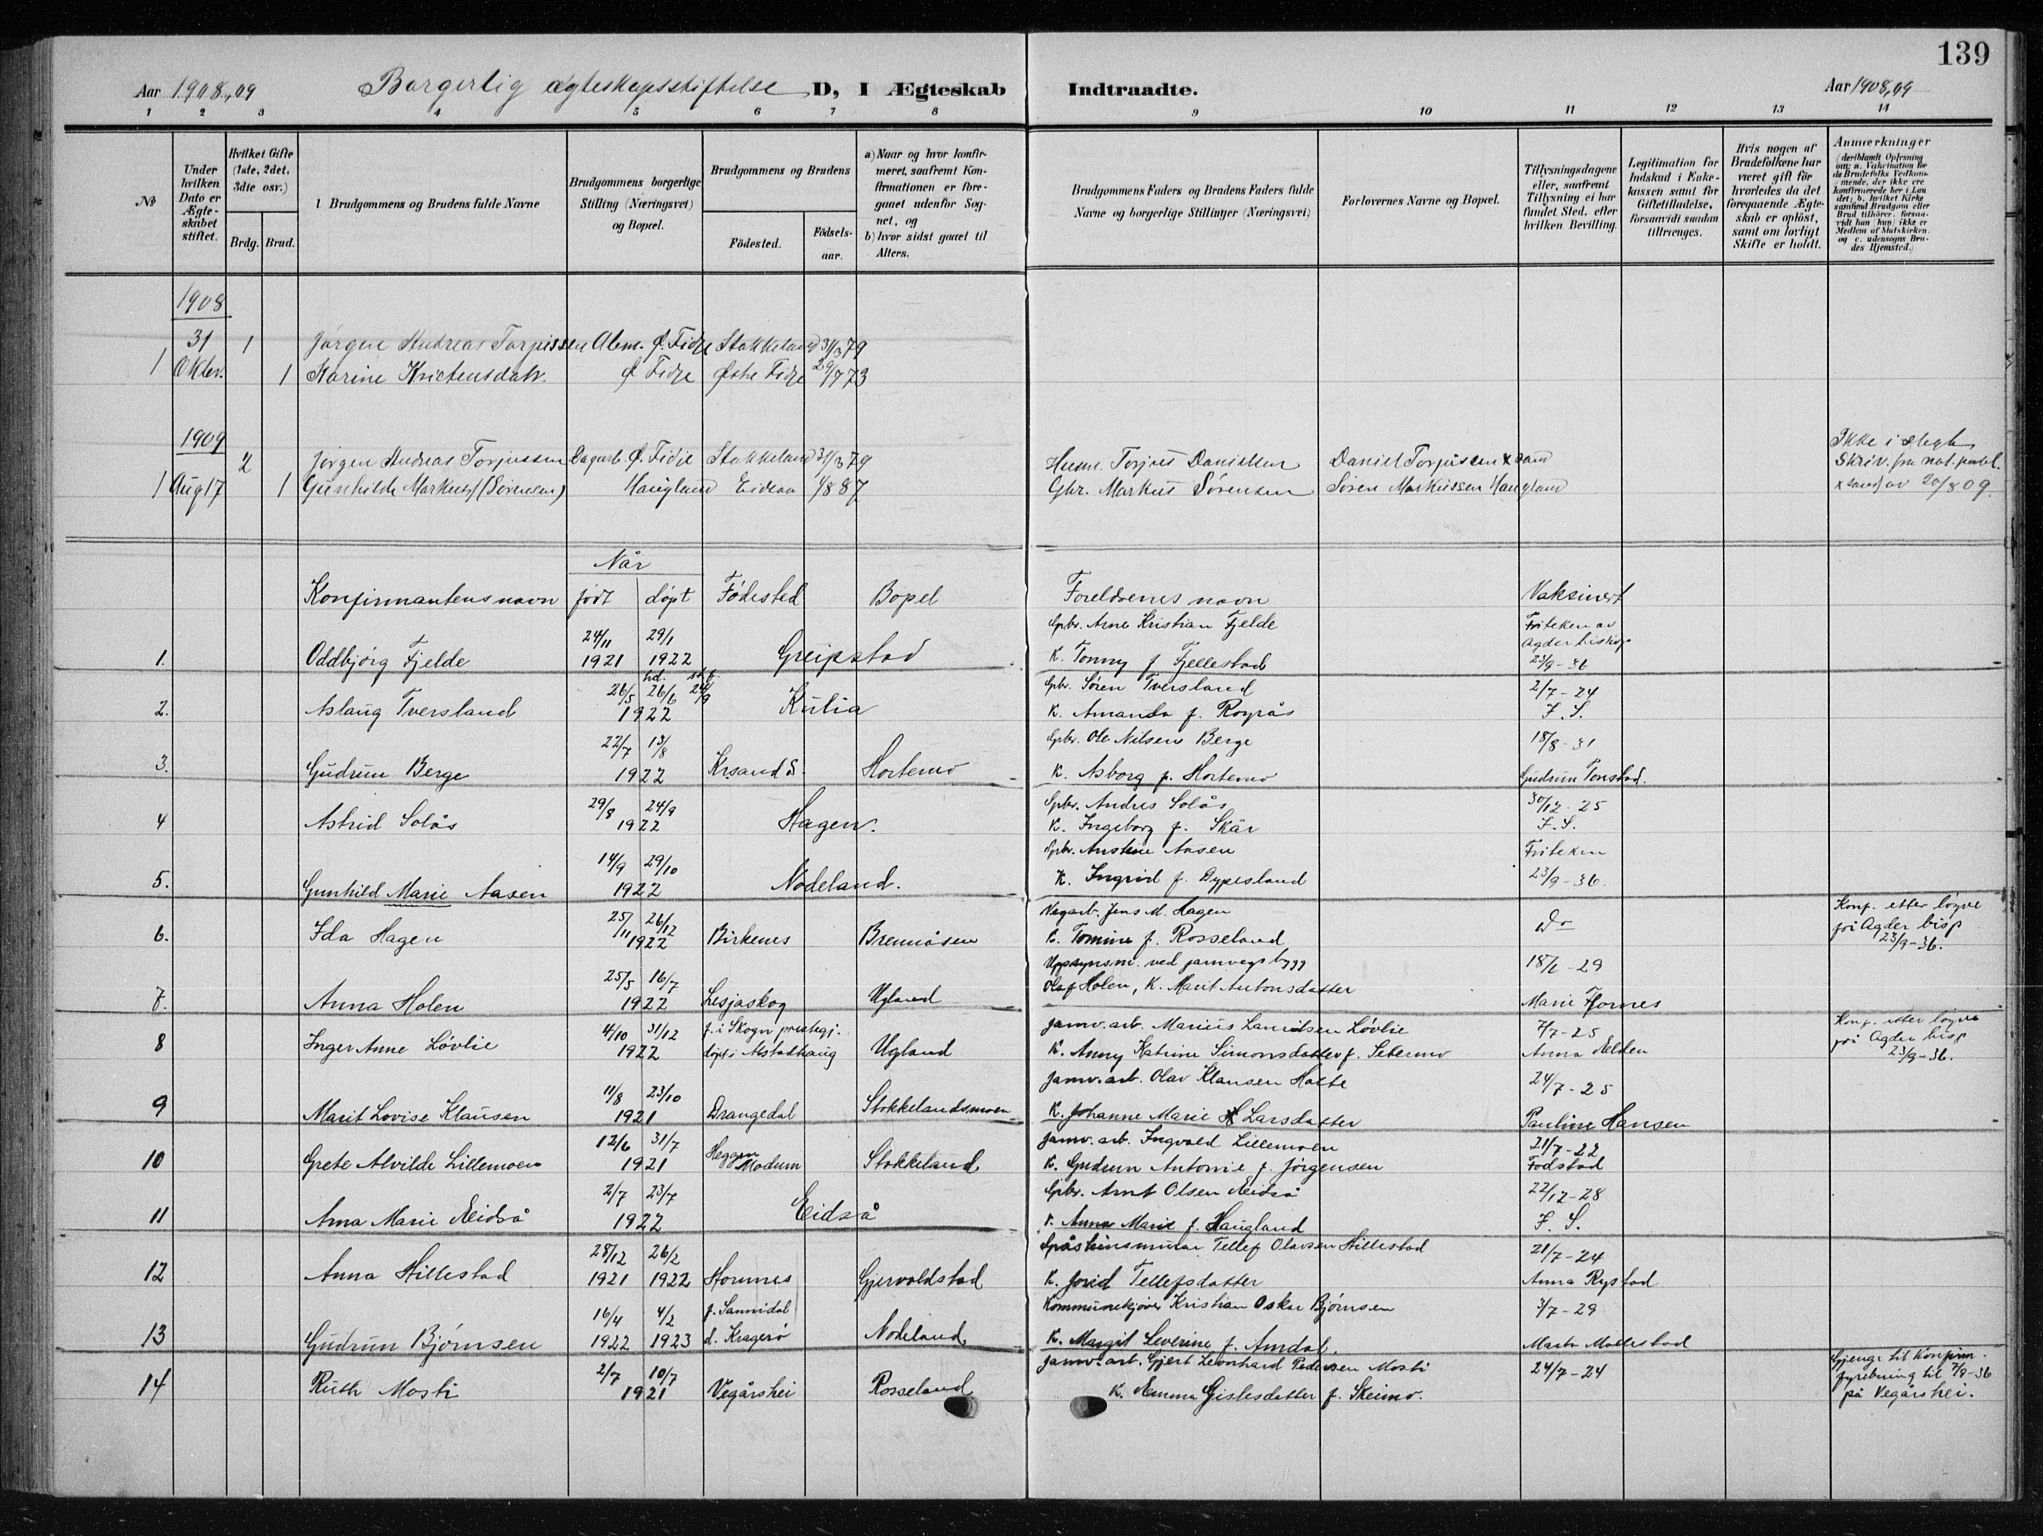 139
Aar 1908,09 Borgerlig ægteskapsstiftelse D, I Ægteskab Indtraadte. Aar 1908,09
1 2 3 4 5 6 7 8 9 10 11 12 13 14
No
Under hvilken Dato er Ægteskabet stiftet.
Hvilket Gifte (1ste, 2det, 3die osv.)
Brdg. Brud.
Brudgommens og Brudens fulde Navne
Brudgommens borgerlige Stilling (Næringsvei) og Bopæl.
Brudgommens og Brudens
Födested. Födsels-aar.
a) Naar og hvor konfirmeret, saafremt Konfirmationen er foregaaet udenfor Sognet, og
b) hvor sidst gaaet til Alters.
Brudgommens Faders og Brudens Faders fulde Navne og borgerlige Stillinger (Næringsvei)
Forlovernes Navne og Bopæl.
Tillysningsdagene eller, saafremt Tillysning ei har fundet Sted, efter hvilken Bevilling.
Legitimation for Indskud i Enkekassen samt for Giftetilladelse, forsaavidt saadan tiltrænges.
Hvis nogen af Brudefolkene har været gift för hvorledes da det foregaaende Ægteskab er oplöst, samt om lovligt Skifte er holdt.
Anmærkninger
(deriblandt Oplysning om: a. Vakcination for de Brudefolks Vedkommende, der ikke ere konfirmerede her i Landet; b. hvilket Kirkesamfund Brudgom eller Brud tilhörer, forsaavidt han (hun) ikke er Medlem af Statskirken, og c. udensogns Brudes Hjemsted.)
1908
31 1 Jørgen Andreas Torjussen Abm. Ø. Fidje Stokkeland 31/3 79
1 Oktbr. 1 Karine Kristensdatr. Ø Fidje Østre Fidje 29/7 73
1909
2 Jørgen Andreas Torjussen Dagarb. Ø. Fidje Stokkeland 31/3 79 Husm. Torjus Danielsen Daniel Torjussen x sand Ikke i slegt
1 Aug 17 1 Gunhilde Markusd (Sørensen) Haugland Eidsaa 1/8 87 Gbr. Markus Sørensen Søren Markussen Haugland Skriv. fra not. publ. x sand av 20/8 09.
Når
Konfirmantens navn født døpt Fødested Bopel Foreldrenes navn Vaksinert
1. Oddbjørg Fjelde 24/11 1921 29/1 1922 Greipstad Gbr. Arne Kristian Fjelde K. Tonny f. Fjellestad Friteken av Agder biskop 23/9-36
2. Aslaug Tversland 26/5 hd. 26/6 st. f. 24/9 1922 Kulia Gbr. Søren Tversland K. Amanda f. Røyrås 2/7-24 F. S.
3. Gudrun Berge 22/7 13/8 1922 Krsand S. Hortemo Gbr. Ole Nilsen Berge K. Asborg f. Hortemo 18/8-31 Gudrun Tonstad.
4 Astrid Solås 29/8 24/9 1922 Hagen. Gbr. Andres Solås K. Ingeborg f. Skår 30/12-25 F. S.
5. Gunhild Marie Aasen 14/9 29/10 1922 Nodeland. Gbr. Aasen K. Ingrid f. Dypesland Friteken 23/9-36.
6. Ida Hagen 25/11 26/12 1922 Birkenes Brennåsen Vegarb. Jens M. Hagen K. Tomine f. Rosseland Do Konf. etter løyve frå Agder bisp 23/9-36.
7. Anna Holen 25/5 16/7 1922 Lesjaskog Ugland Uppsynsm. ved jarnvegsbygg Olaf Holen, K. Marit Antonsdatter 18/6-29 Marie Fornes
8 Inger Anne Løvlie 4/10 31/12 1922 f. i Skogn prestegj. døpt i Alstadhaug Ugland Jarnv.arb. Marius Lauritsen Løvlie K. Anny Katrine Simonsdatter f. Setermo 7/7-25 Anna Konf. etter løyve frå Agder bisp 23/9-36.
9 Marit Lovise Klausen 11/8 23/10 1921 Drangedal Stokkelandsmoen Jarnv.arb. Olav Klausen Holte K. Johanne Marie Larsdatter 24/7-25 Pauline Hansen
10 Grete Alvilde Lillemoen 12/6 31/7 1921 Heggen Modum Stokkeland Jarnv.arb. Ingvald Lillemoen K. Gudrun Antonie f. Jørgensen 21/7-22 Fodstad
11 Anna Marie Eidså 2/7 23/7 1922 Eidså Gbr. Arnt Olsen Eidså K. Anna Marie f. Haugland 22/12-28 F. S.
12 Anna Hillestad 28/12 1921 26/2 1922 Hornnes Gjervoldstad Gråsteinsmurar Tellef Olavsen Hillestad K. Jorid Tellefsdatter 21/7-24 Anna Rystad
13 Gudrun Bjørnsen 16/4 1922 4/2 1923 f. Sannidal d. Kragerø Nodeland Kristian Oskar Bjørnsen K. Margit Severine f. Amdal. 3/7-29 Marta Mollestad
14 Ruth Mosti 2/7 10/7 1921 Vegårshei Rosseland Jarnv.arb. Gjert Leonhard Pedersen Mosti K. Emma Gislesdatter f. Skeimo. 24/7-24 Gjenge til Konfirm. fyrebuing til 7/9-36 på Vegårshei.